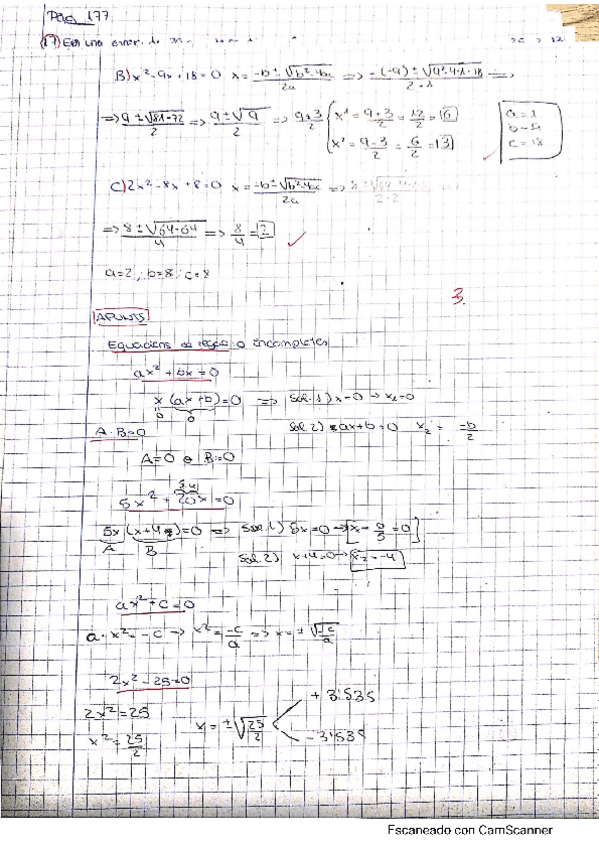 Pàg 177
17)
B) x² - 9x + 18 = 0 x = -b ± √b² - 4ac / 2a => -(-9) ± √9² - 4·1·18 / 2·1 =>
=> 9 ± √81-72 / 2 => 9 ± √9 / 2 => 9 ± 3 / 2 { x' = 9+3 / 2 = 12 / 2 = 6
x' = 9-3 / 2 = 6 / 2 = 3
a = 1
b = 9
c = 18
C) 2x² - 8x + 8 = 0 x = -b ± √b² - 4ac / 2a =>
=> 8 ± √64-64 / 4 => 8 / 4 = 2
a = 2, b = 8, c = 8
3.
APUNTS
Equacions incompletes
ax² + bx = 0
x (ax + b) = 0 => Sol. 1) x = 0 → x₁ = 0
0 0
A · B = 0
Sol. 2) ax + b = 0 x₂ = -b / 2
A = 0 o B = 0
5x² + 20x = 0
5·4
5x (x + 4) = 0 => Sol. 1) 5x = 0 → x = 0 / 5 = 0
A B
Sol. 2) x + 4 = 0 → x₂ = -4
ax² + c = 0
a · x² = -c → x² = -c / a => x = ± √-c / a
2x² - 25 = 0
2x² = 25
x² = 25 / 2
x = ± √25 / 2
+ 3'535
- 3'535
Escaneado con CamScanner